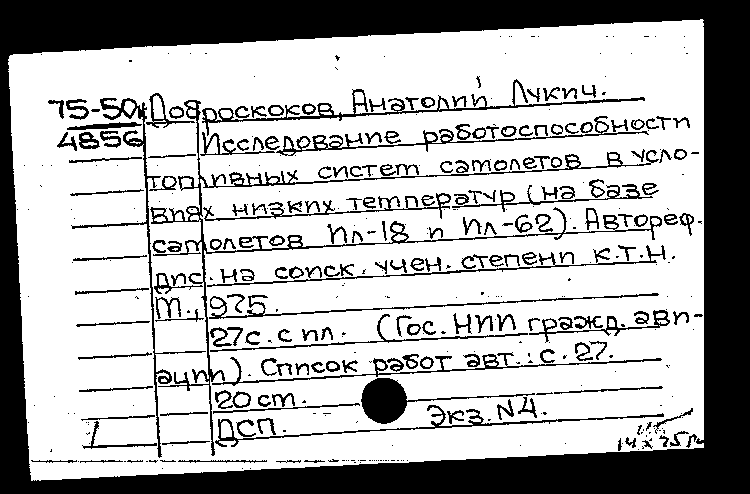 75-50к Доброскоков, Анатолий Лукич.
4856 Исследование работоспособности
топливных систем самолетов в усло-
виях низких температур (на базе
самолетов Ил-18 и Ил-62). Автореф.
дис. на соиск. учен. степени к.т.н.
М., 1975.
27с. с ил. (Гос. НИИ гражд. ави-
ации). Список работ авт.: с. 27.
20 см.
ДСП. Экз. N4.